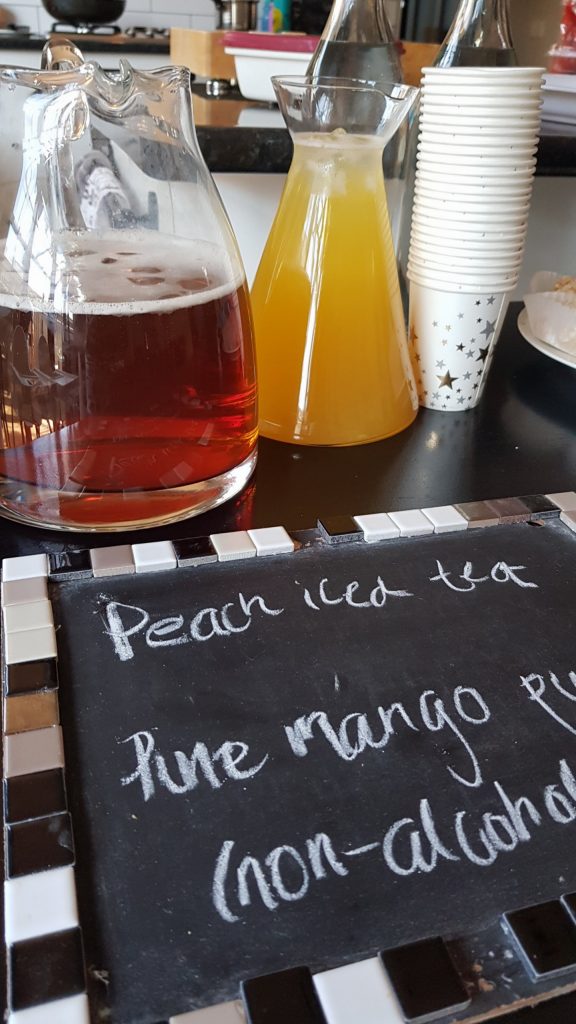 Peach iced tea
Pure mango pu
(non-alcohol